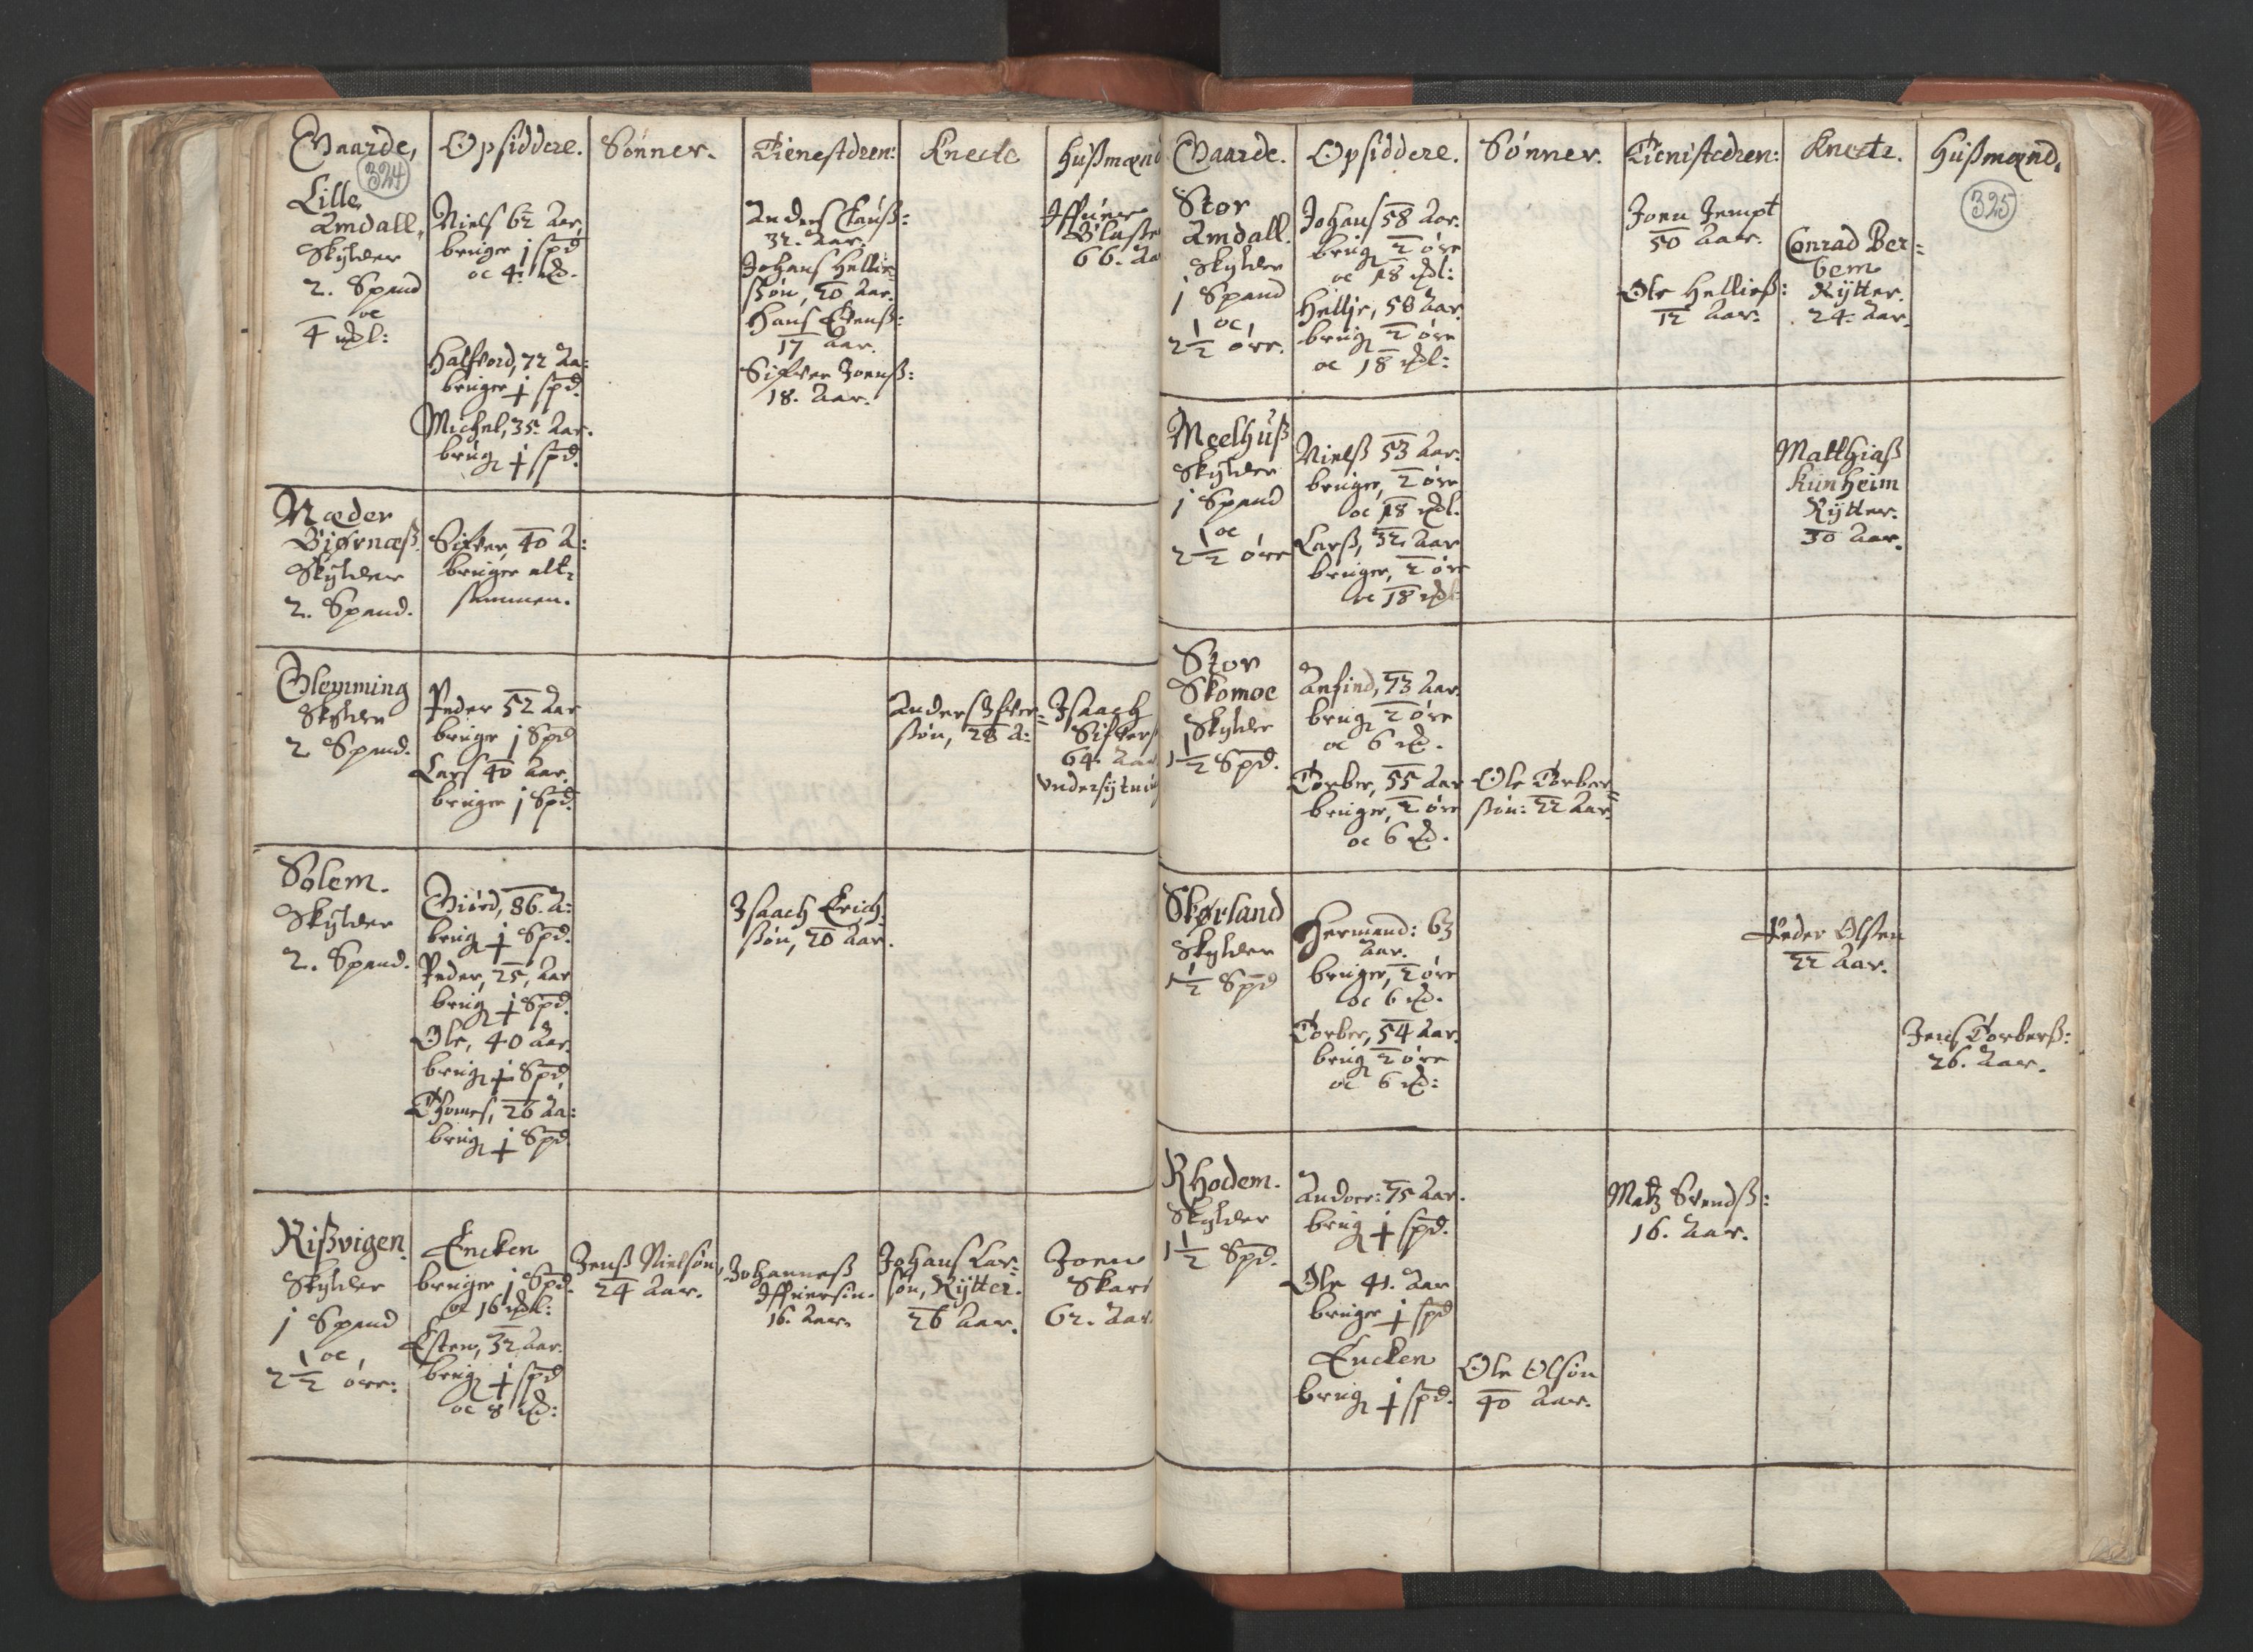 Gaarde,
Opsiddere.
Sønner.
Tienestdren:
Knecte
Hüßmænd
324
Lille
Amdall,
Skylder
2. Spand
oc
4 mkl:
Niels 62 Aar,
bruger j spd
oc 4: mk.
Halfvord, 72 Aa:
bruger j spd.
Michel, 35. Aar.
brug j spd.
Anders
32. Aar.
Johans Hellie
ßøn, 20 Aar.
Hans
17 Aar.
Sifver Joenß:
18. Aar.
66. Aa
Næder
Biørnæß.
Skylder
2. Spand.
Sifver, 40 A:
bruger alt,
sammen.
Glemming
Skylder
2 Spand.
Peder 52 Aar
bruger j Spd
Lars 40 Aar.
bruger j Spd.
Anders Ifver=
ßøn, 28 A:
Isaach
Sifvers
64. Aar
Solem.
Skylder
2. Spand.
86. A:
brug j Spd.
Peder, 25, Aar
brug j Spd.
Ole, 40 Aar.
brug j Spd
Thomes, 26 Aa:
brug j Spd
Isaach Erich
ßøn, 20 Aar.
Rißvigen.
Skylder
j Spand
oc
2 1/2 øre:
Encken
bruger j Spd.
oc 16 mkl:
Esten, 32 Aar.
brug j spd
oc 8 mk:
Jenß Nielsøn,
24 Aar.
Johanneß
16. Aar.
Johans Lar=
søn, Rÿtter.
26 Aar.
Joen
Skar
62. Aar
Gaarde.
Opsiddere.
Sønner.
Tienistedren:
Knecte.
Hüßmænd.
325
Stor
Amdall.
Skylder
j Spand
oc,
2 1/2 øre.
Johans 58 Aar.
brug 2 øre
oc 18 mkl:
Hellje, 58 Aar.
brug 2 øre
oc 18 mkl:
Joen Jempt
50 Aar.
Ole Helließ:
12 Aar.
Conrad Ber=
bem
Rÿtter.
24. Aar.
Meelhüß
Skylder
j Spand
oc
2 1/2 øre
Nielß 53 Aar.
bruger, 2 øre
oc 18 mkl.
Larß, 32. Aar
bruger, 2 øre
oc 18 mkl
Matthiaß
Künheim
Rÿtter.
30 Aar.
Stor
Skomoe
Skylder
1 1/2 Spd.
Anfind, 73 Aar.
brug 2 øre
oc 6 mk.
Torber, 55 Aar
bruger, 2 øre
oc 6 mk.
Ole Torber=
ßøn: 22 Aar.
Skørland
Skylder
1 1/2 Spd
Hermand: 63
Aar.
bruger, 2 øre
oc 6 mk.
Torber, 54 Aar.
brug 2 øre
oc 6 mk:
Peder Olsen
22 Aar.
Jens Torberß:
26. Aar.
Rhodem.
Skylder
1 1/2 Spd.
Andor: 75 Aar.
brug j spd.
Ole 41. Aar
bruger j spd
Encken
brug j spd.
Ole Olsøn
40 Aar.
Matz Svendß:
16. Aar.